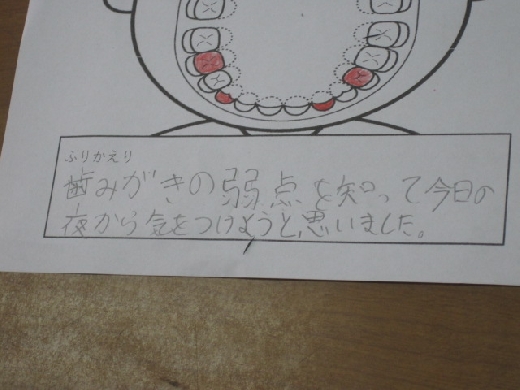 ふりかえり
歯みがきの弱点を知って今日の
夜から気をつけようと思いました。